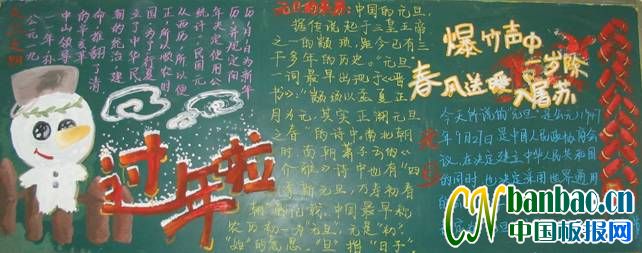 公元一九
一年,孙
中山领导
命,推翻了清
朝的统治,建
立了中华民
国,为了行夏
正,所以顺农时
从西历,所以便
统计。民国元
年决定使用公
历,并规定阳
历月日为新年
过年啦
元旦的来历:中国的元旦,
据传说起于三皇五帝
之一的颛顼,距今已有三
千多年的历史。“元旦”
一词最早出现于《晋
书》:“颛顼以孟夏正
月为元,其实正朔元旦
之春”的诗中。南北朝
时,南朝萧子云的《
介雅》诗中也有“四
季新元旦,万寿初春
朝”的记载。中国最早称
农历初一为“元旦”,元是“初”
“始”的意思,“旦”指“日子”,
爆竹声中一岁除
春风送暖入屠苏
元旦
今天所说的元旦,是公元1949
年9月27日,是中国人民政协商会
议,在决定建立中华人民共和国
的同时,也决定采用世界通用
的
CN banbao.cn
中国板报网